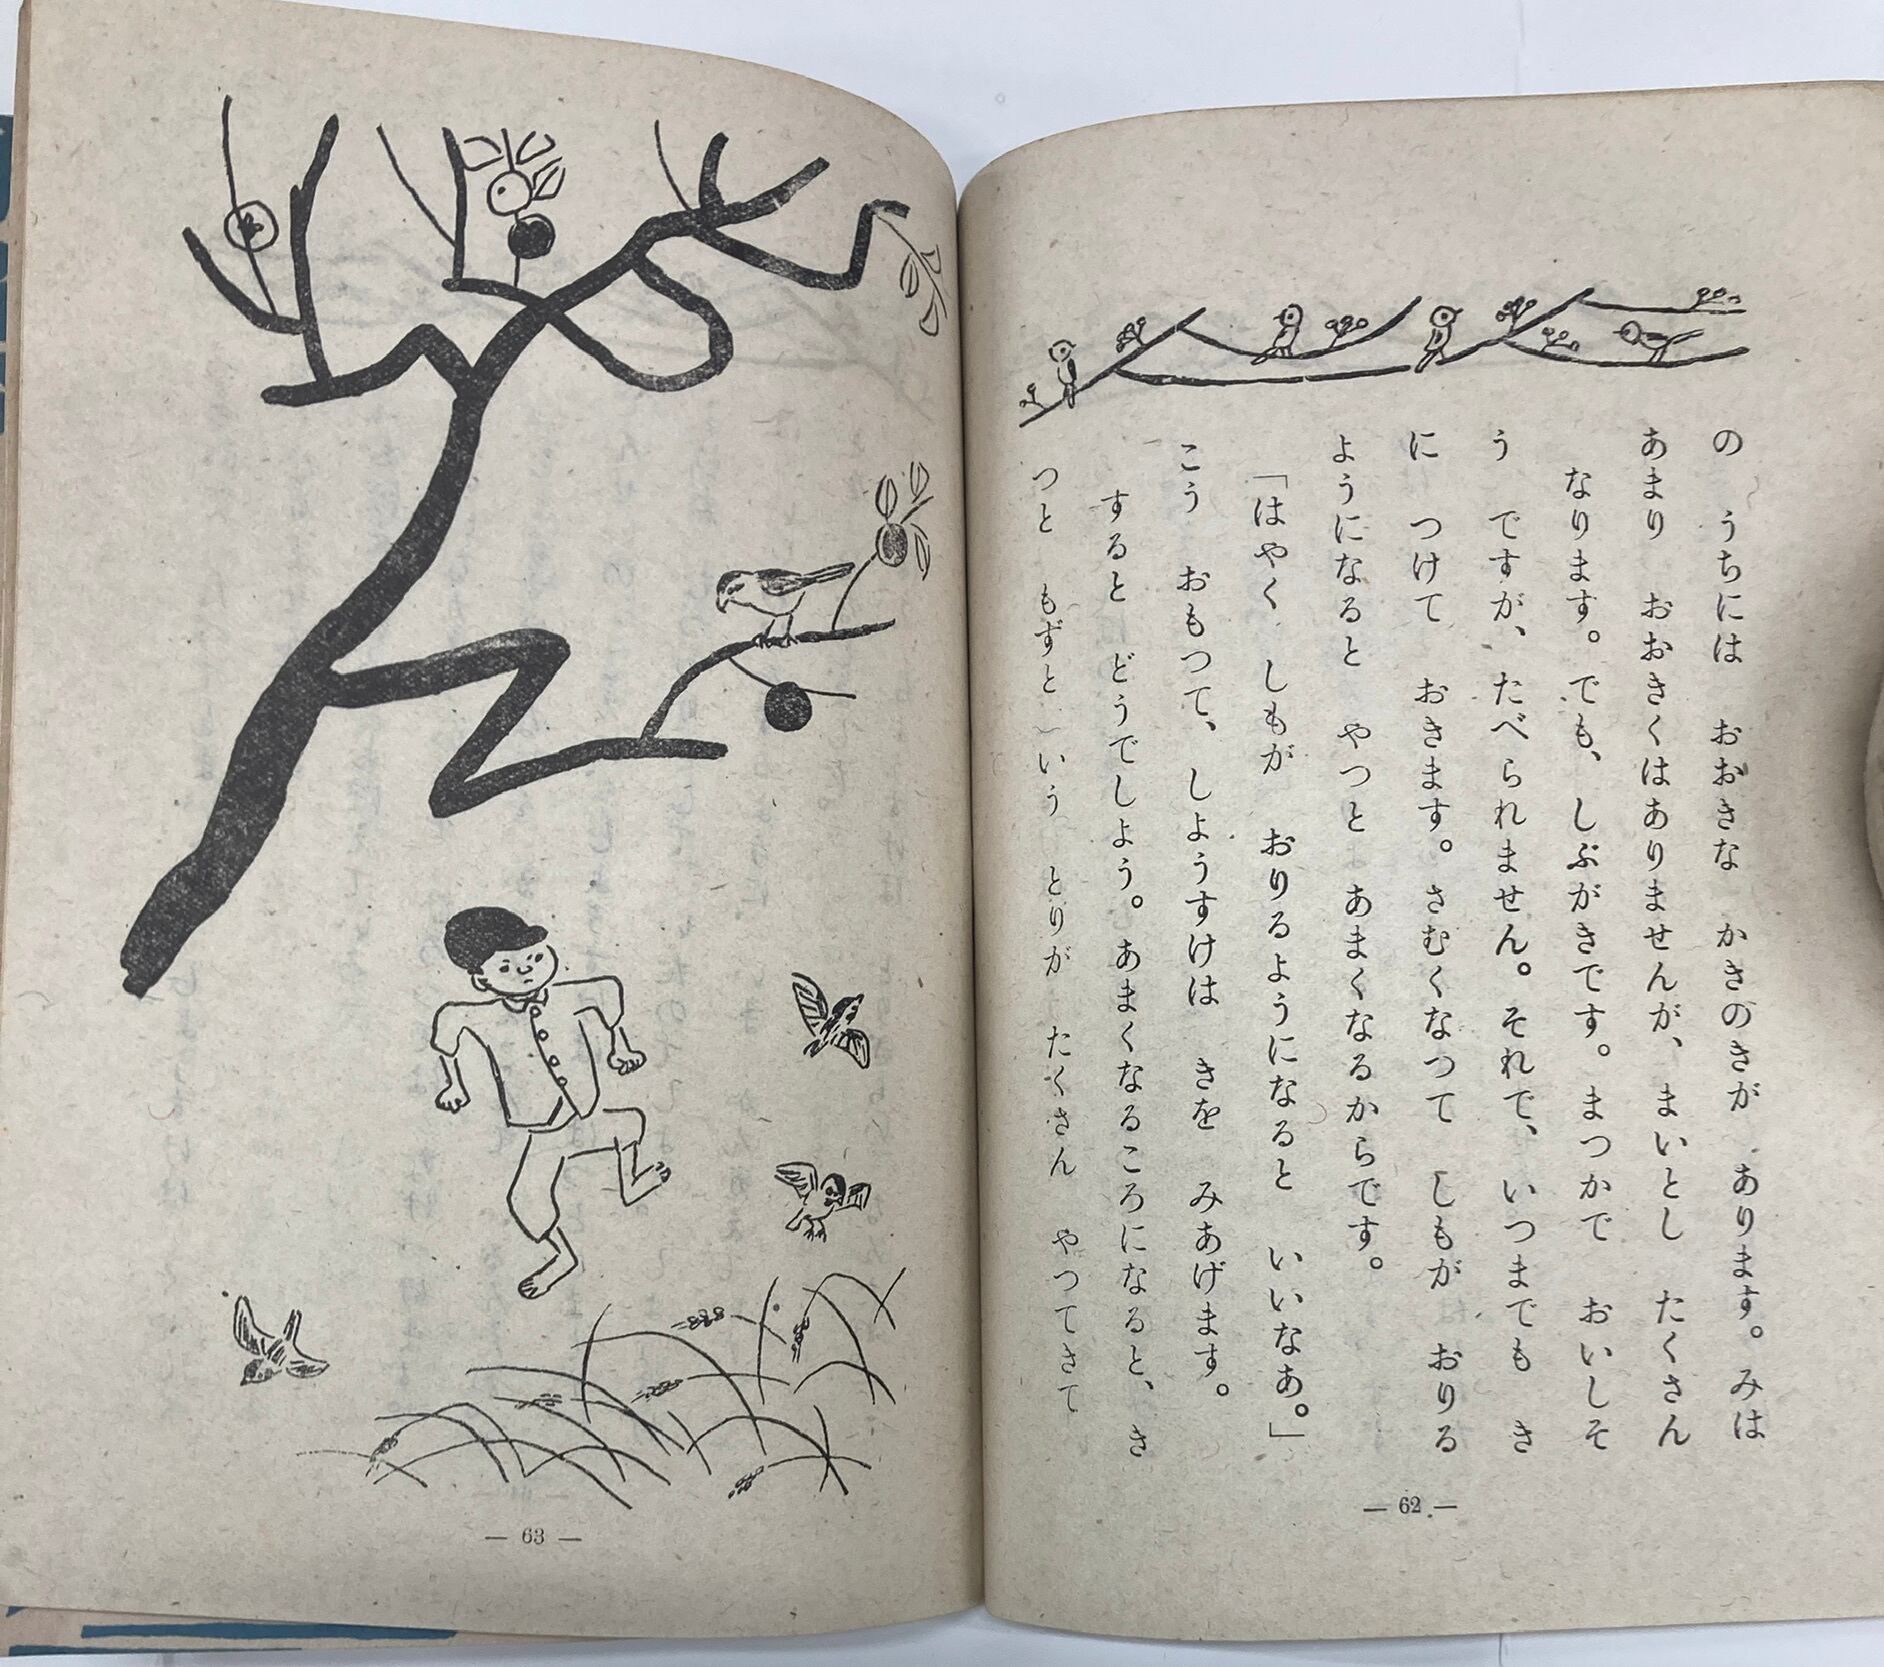 の　うちには　おおきな　かきのきが　あります。みは
あまり　おおきくはありませんが、まいとし　たくさん
なります。でも、しぶがきです。まつかで　おいしそ
う　ですが、たべられません。それで、いつまでも　き
に　つけて　おきます。さむくなつて　しもが　おりる
ようになると　やつと　あまくなるからです。
「はやく　しもが　おりるようになると　いいなあ。」
こう　おもつて、しようすけは　きを　みあげます。
すると　どうでしよう。あまくなるころになると、き
つと　もずと　いう　とりが　たくさん　やつてきて
— 62 —
— 63 —